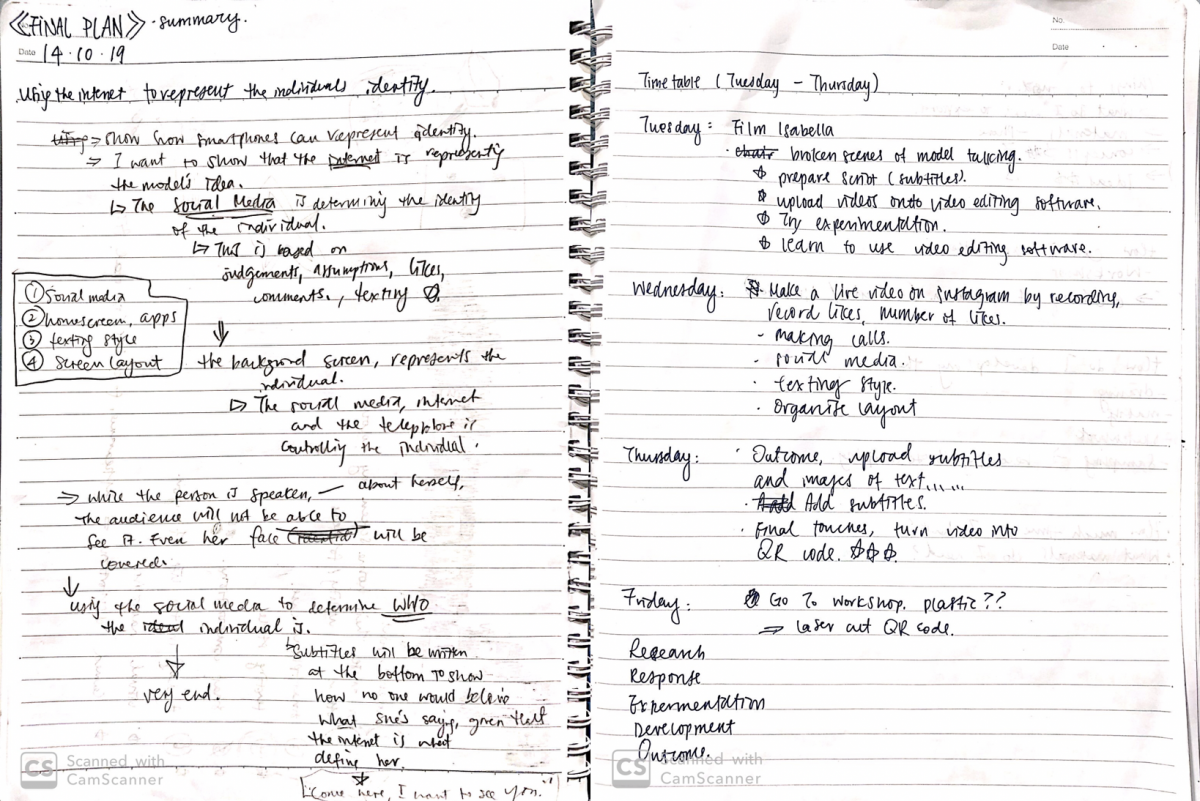 《FINAL PLAN》 · summary.
Date 14·10·19
Using the internet to represent the individuals identity.
⇒ show how smartphones can represent identity.
⇒ I want to show that the internet is representing
the model's idea.
↳ The Social Media is determing the identity
of the individual.
↳ This is based on
judgements, assumptions, likes,
comments., texting
① Social media
② homescreen, apps
③ texting style
④ screen layout
the background screen, represents the
individual.
▷ The social media, internet
and the telephone is
controlling the individual.
⇒ while the person is speaken, — about herself,
the audience will not be able to
see it. Even her face will be
covered.
using the social media to determine WHO
the individual is.
very end.
↳ Subtitles will be written
at the bottom to show
how no one would believe
what she's saying, given that
the internet is what
define her.
"Come here, I want to see you."
No.
Date
Time table (Tuesday - Thursday)
Tuesday: Film Isabella
· broken scenes of model talking.
prepare script (subtitles).
upload videos onto video editing software.
Try experimentation.
learn to use video editing software.
Wednesday: Make a live video on instagram by recording,
record likes, number of likes.
- making calls.
· social media.
· texting style.
· organise layout
Thursday: · Outcome, upload subtitles
and images of text......
· Add subtitles.
· final touches, turn video into
QR code.
Friday: Go to workshop. plastic??
⇒ laser cut QR code.
Research
Response
Expermentation
Development
Outcome.
CS Scanned with
CamScanner
CS Scanned with
CamScanner